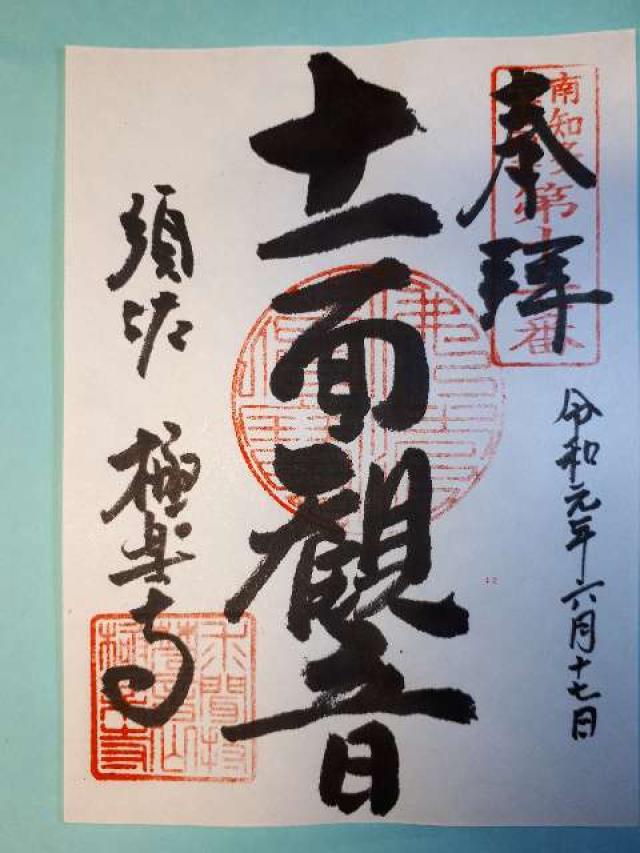 奉拝
南知多
第十
番
令和元年六月十七日
十一面観音
須佐 極楽寺
極楽寺